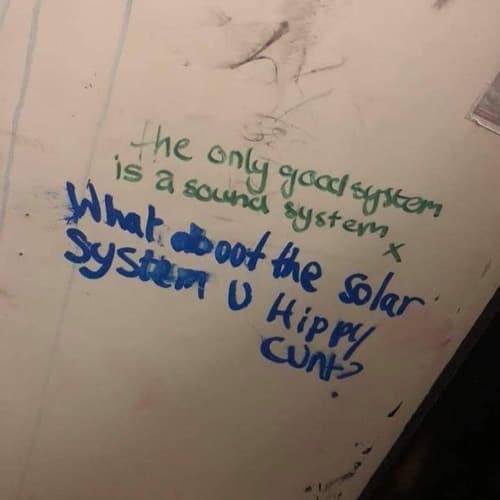 the only good system
is a sound system x
What aboot the solar
system U Hippy
CUnt?